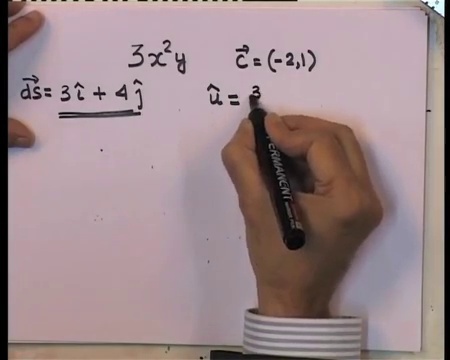 3x²y c⃗ = (-2,1)
d⃗s = 3î + 4ĵ û = 3
PERMANENT